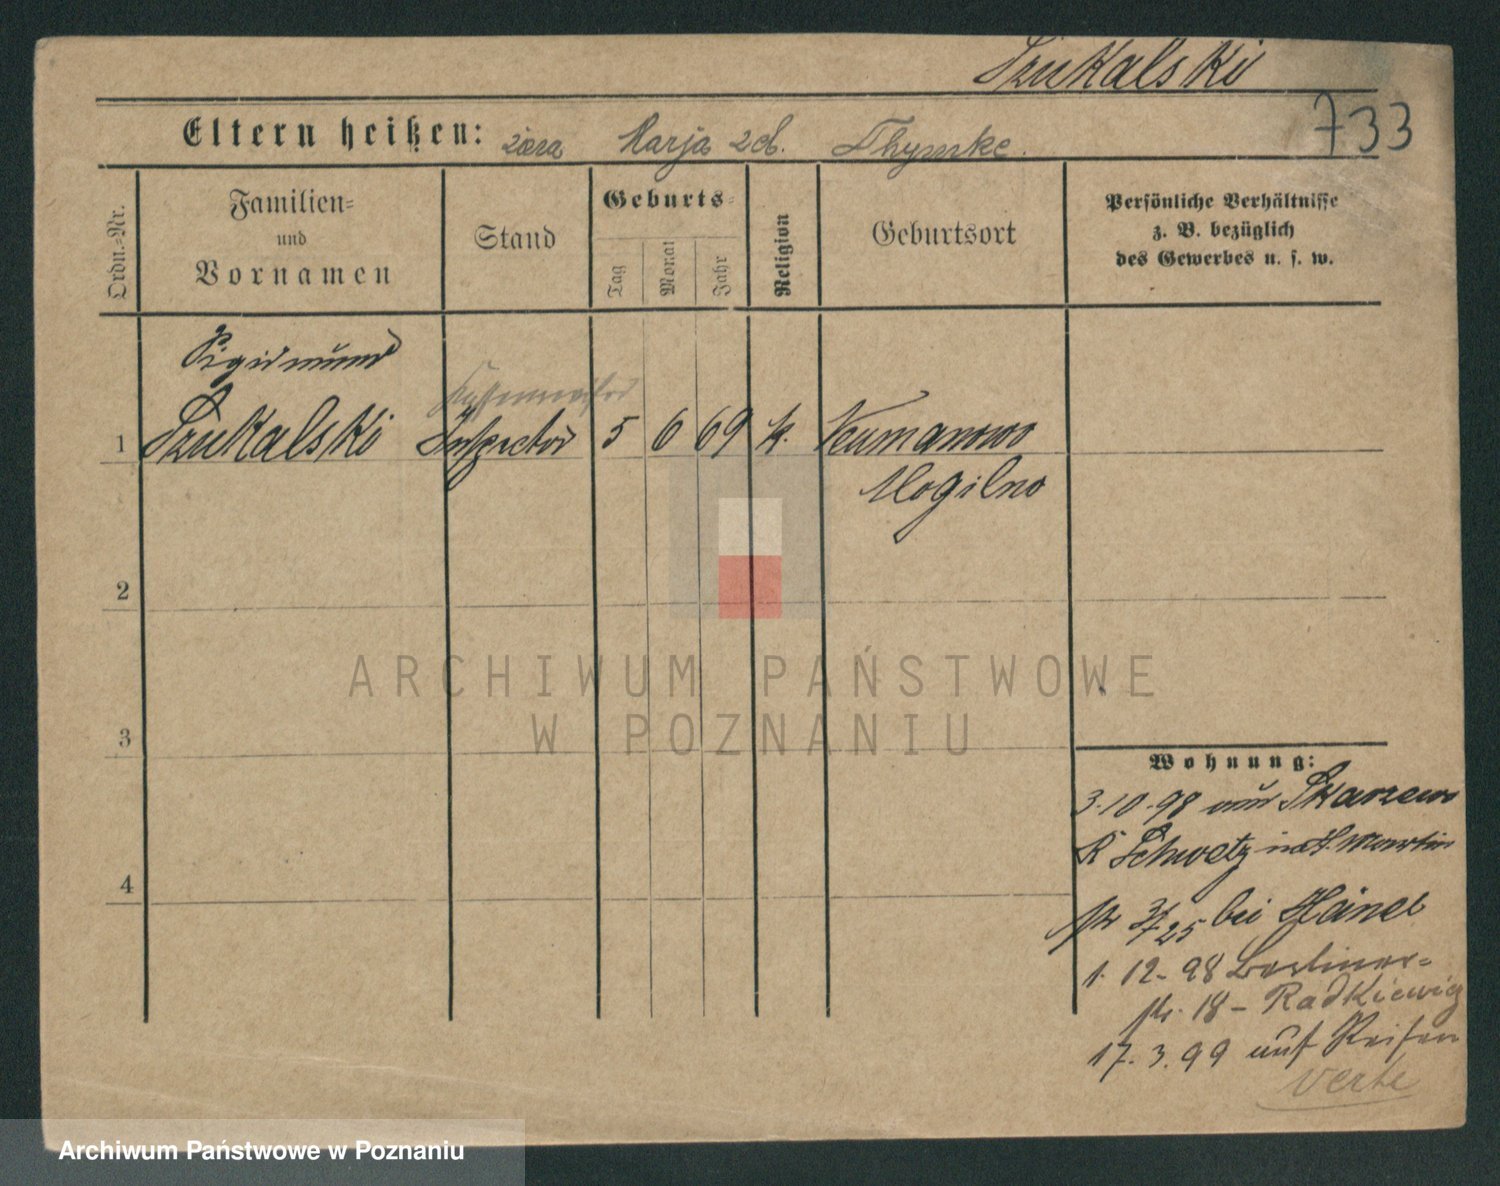 Szukalski
Eltern heißen: Marja zd. Thymke.
733
Ordn.=Nr.
Familien=
und
Vornamen
Stand
Geburts=
Tag
Monat
Jahr
Religion
Geburtsort
Persönliche Verhältnisse
z. B. bezüglich
des Gewerbes u. s. w.
Sigismund
1 Szukalski Inspector 5 6 69 k. Neumanowo
Mogilno
2
3
4
ARCHIWUM PAŃSTWOWE
W POZNANIU
Wohnung:
3.10.98 aus Skarzewo
K Schwetz in St. Martin
str 3/25 bei Hänel
1. 12-98 Berliner=
str. 18 - Radkiewicz
17.3.99 auf Reisen
verte
Archiwum Państwowe w Poznaniu